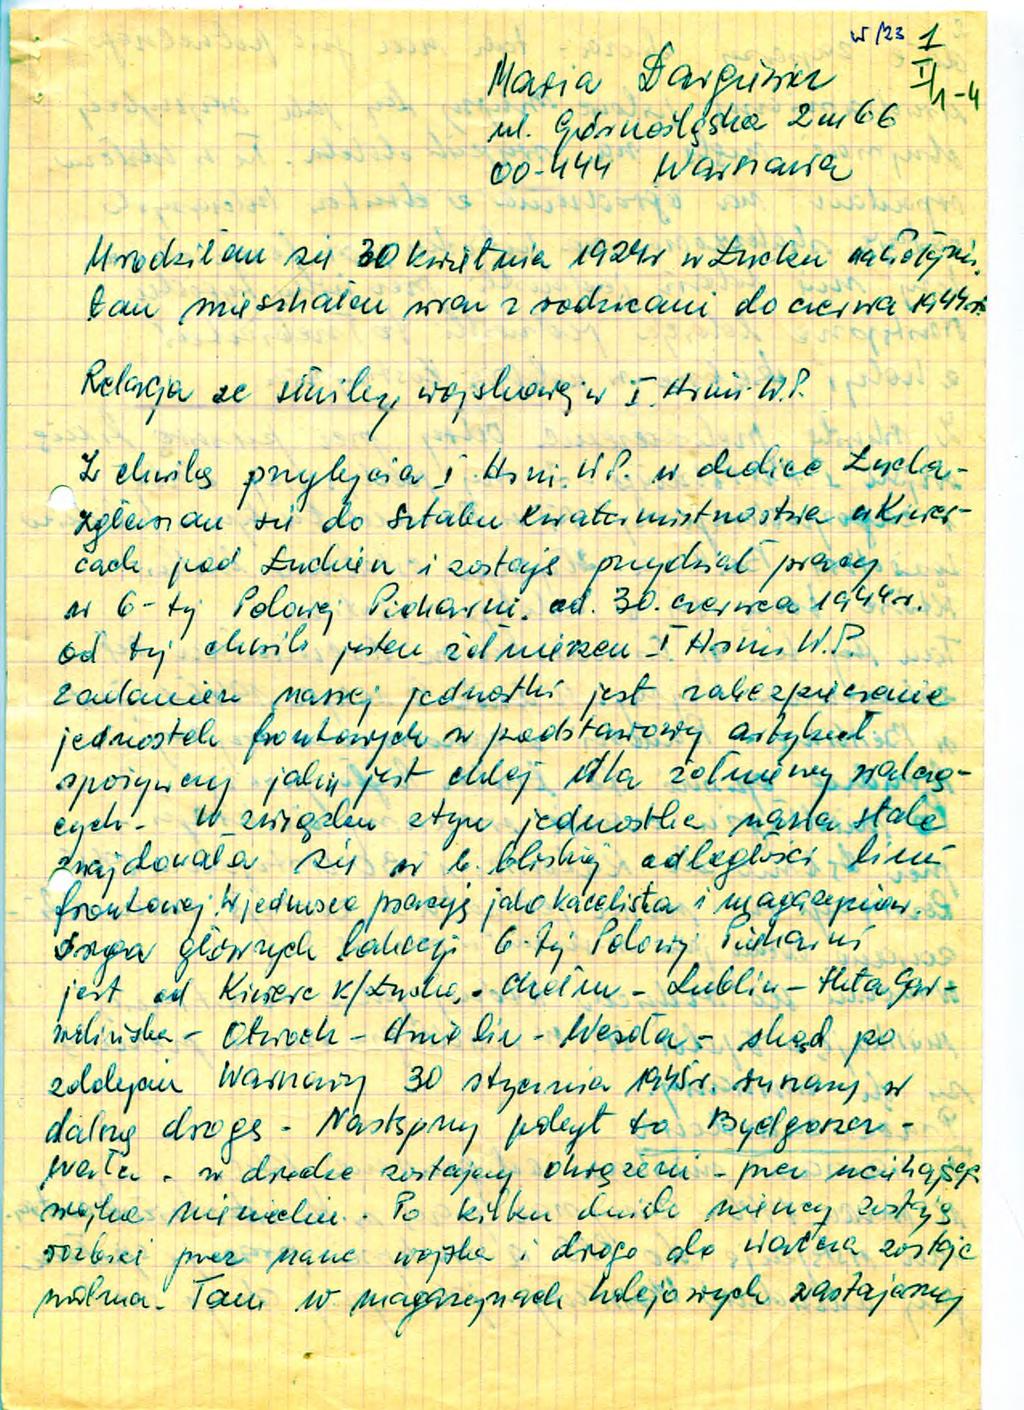 W/23 1
II/1-4
Maria
ul. Górnośląska 2 m 66
00-444 Warszawa
Urodziłam się 30 kwietnia 1924 r w Łucku na Wołyniu.
tam mieszkałam wraz z rodzicami do czerwca 1944 r.
Relacja ze służby wojskowej w I. Armii W.P.
Z chwilą przybycia I Armi. W.P. w okolice Łucka -
zgłaszam się do Sztabu Kwatermistrzostwa w Kiwer-
cach pod Łuckiem i zostaję przydział pracy
w 6-tej Polowej Piekarni. od. 30. czerwca 1944 r.
od tej chwili jestem żołnierzem I Armii W.P.
zadaniem naszej jednostki jest zabezpieczenie
jednostek frontowych w podstawowy artykuł
spożywczy jakim jest chleb dla żołnierzy walczą-
cych. W związku z tym jednostka nasza stale
znajdowała się w b. bliskiej odległości linii
frontowej. W jednostce pracuję jako kancelistka i magazynier.
Droga głównych lokacji 6-tej Polowej Piekarni
jest od Kiwerc k/Łucka, - Chełm - Lublin - Huta Gar-
wolińska - Otwock - Anielin - Wesoła - skąd po
zdobyciu Warszawy 30 stycznia 1945 r. ruszamy w
dalszą drogę - Następny pobyt to Bydgoszcz -
Wałcz. w drodze zostajemy okrążeni - przez uciekające
wojska niemieckie. Po kilku dniach niemcy zostają
rozbici przez nasze wojska i droga do Wałcza zostaje
wolna. Tam w magazynach kolejowych zastajemy